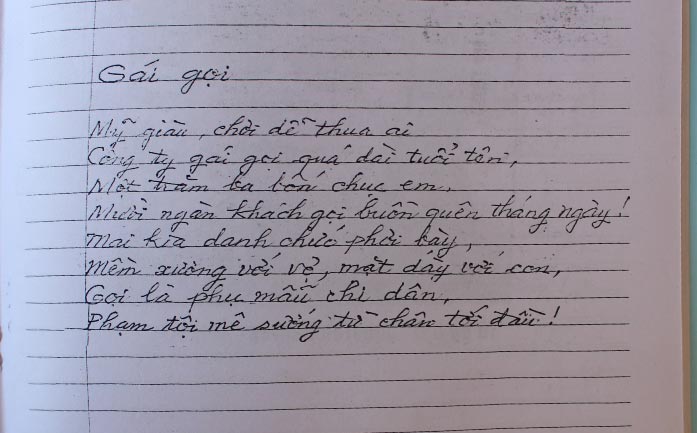 Gái gọi
Mỹ giàu, chơi dễ thua ai
Công ty gái gọi quá dài tuổi tên,
Một trăm ba bốn chục em,
Mười ngàn khách gọi buồn quên tháng ngày!
Mai kia danh chức phơi bày,
Mềm xương với vợ, mặt dầy với con,
Gọi là phụ mẫu chi dân,
Phạm tội mê sướng từ chân tới đầu!